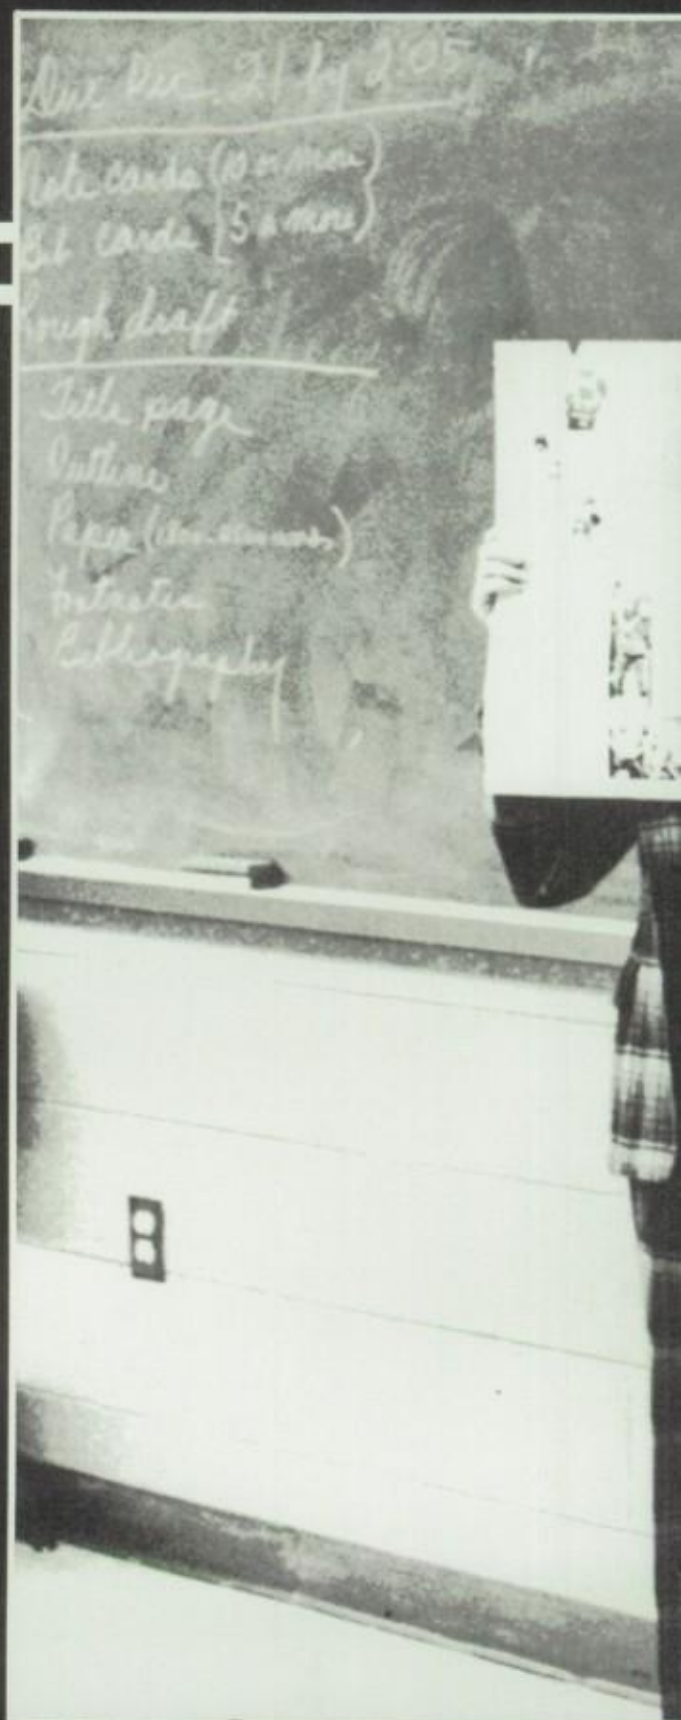 Due Dec. 21 by 2:05
Note cards (10 or more)
Bib cards (5 or more)
Rough draft
Title page
Outline
Paper
Footnotes
Bibliography